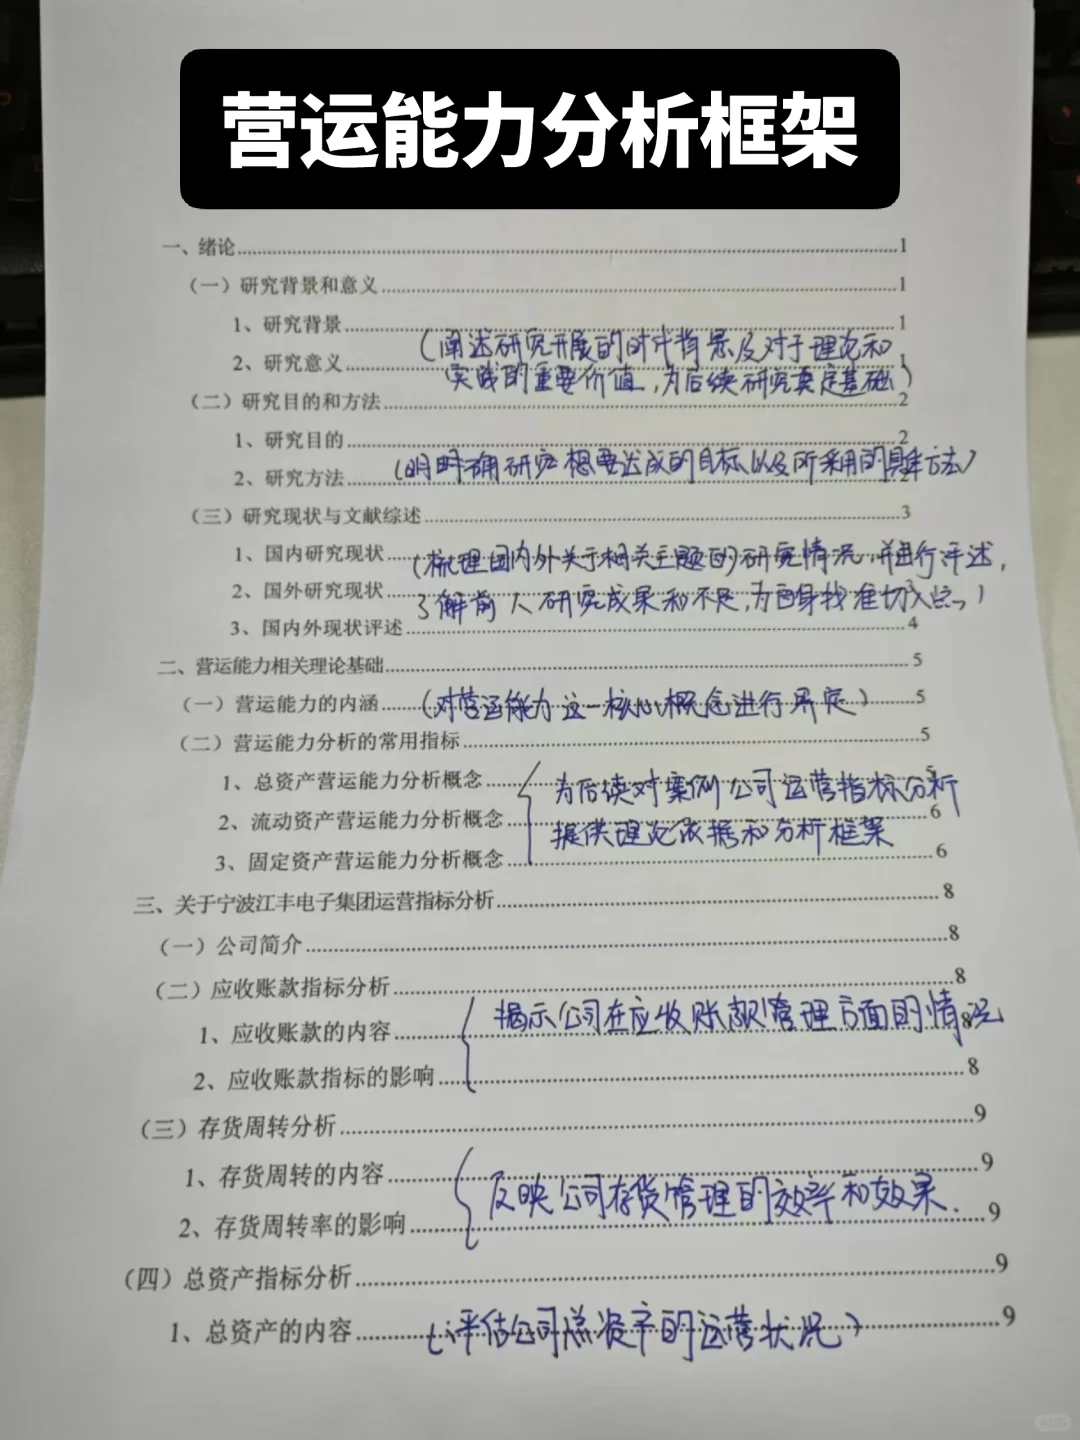 营运能力分析框架
一、绪论 1
（一）研究背景和意义 1
1、研究背景 1
（阐述研究开展的时代背景及对于理论和
2、研究意义 1
实践的重要价值，为后续研究奠定基础）
（二）研究目的和方法 2
1、研究目的 2
（明确研究想要达成的目标以及所采用的具体方法）
2、研究方法 2
（三）研究现状与文献综述 3
1、国内研究现状
（梳理国内外关于相关主题的研究情况，并进行评述，
2、国外研究现状 3
了解前人研究成果和不足，为自身找准切入点。）
3、国内外现状评述 4
二、营运能力相关理论基础 5
（一）营运能力的内涵 5
（对营运能力这一核心概念进行界定）
（二）营运能力分析的常用指标 5
1、总资产营运能力分析概念 5
为后续对案例公司运营指标分析
2、流动资产营运能力分析概念 6
提供理论依据和分析框架
3、固定资产营运能力分析概念 6
三、关于宁波江丰电子集团运营指标分析 8
（一）公司简介 8
（二）应收账款指标分析 8
揭示公司在应收账款管理方面的情况
1、应收账款的内容 8
2、应收账款指标的影响 8
（三）存货周转分析 9
1、存货周转的内容 9
反映公司存货管理的效率和效果.
2、存货周转率的影响 9
（四）总资产指标分析 9
1、总资产的内容 9
（评估公司总资产的运营状况）